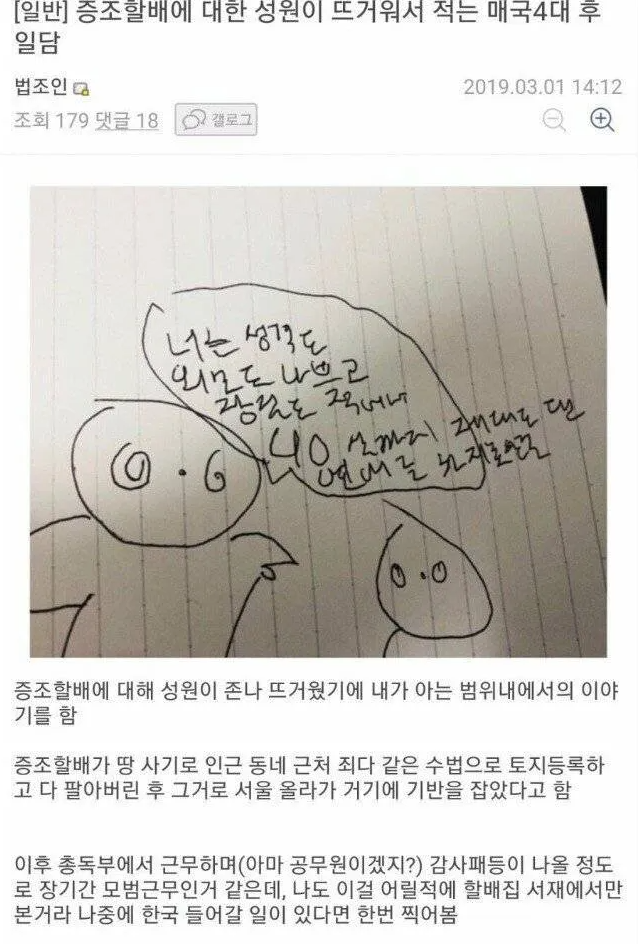 [일반] 증조할배에 대한 성원이 뜨거워서 적는 매국4대 후
일담
법조인
2019.03.01 14:12
조회 179 댓글 18
갤로그
너는 성격도
외모도 나쁘고
장점도 적어서
40 살까지 제대로 된
연애를 하지
증조할배에 대해 성원이 존나 뜨거웠기에 내가 아는 범위내에서의 이야
기를 함
증조할배가 땅 사기로 인근 동네 근처 죄다 같은 수법으로 토지등록하
고 다 팔아버린 후 그거로 서울 올라가 거기에 기반을 잡았다고 함
이후 총독부에서 근무하며(아마 공무원이겠지?) 감사패등이 나올 정도
로 장기간 모범근무인거 같은데, 나도 이걸 어릴적에 할배집 서재에서만
본거라 나중에 한국 들어갈 일이 있다면 한번 찍어봄